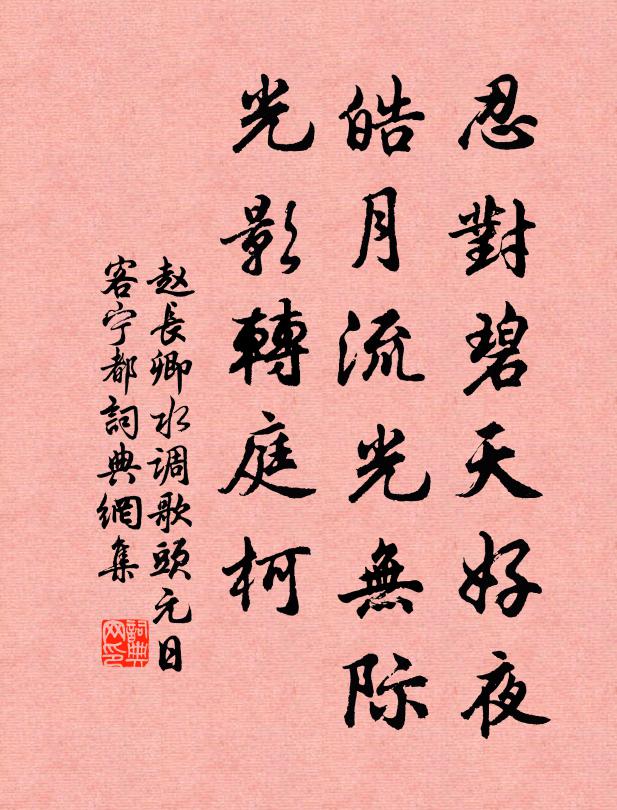 忍對碧天好夜
皓月流光無际
光影轉庭柯
赵長卿水调歌頭元日
客宁都詞典網集
詞典网印